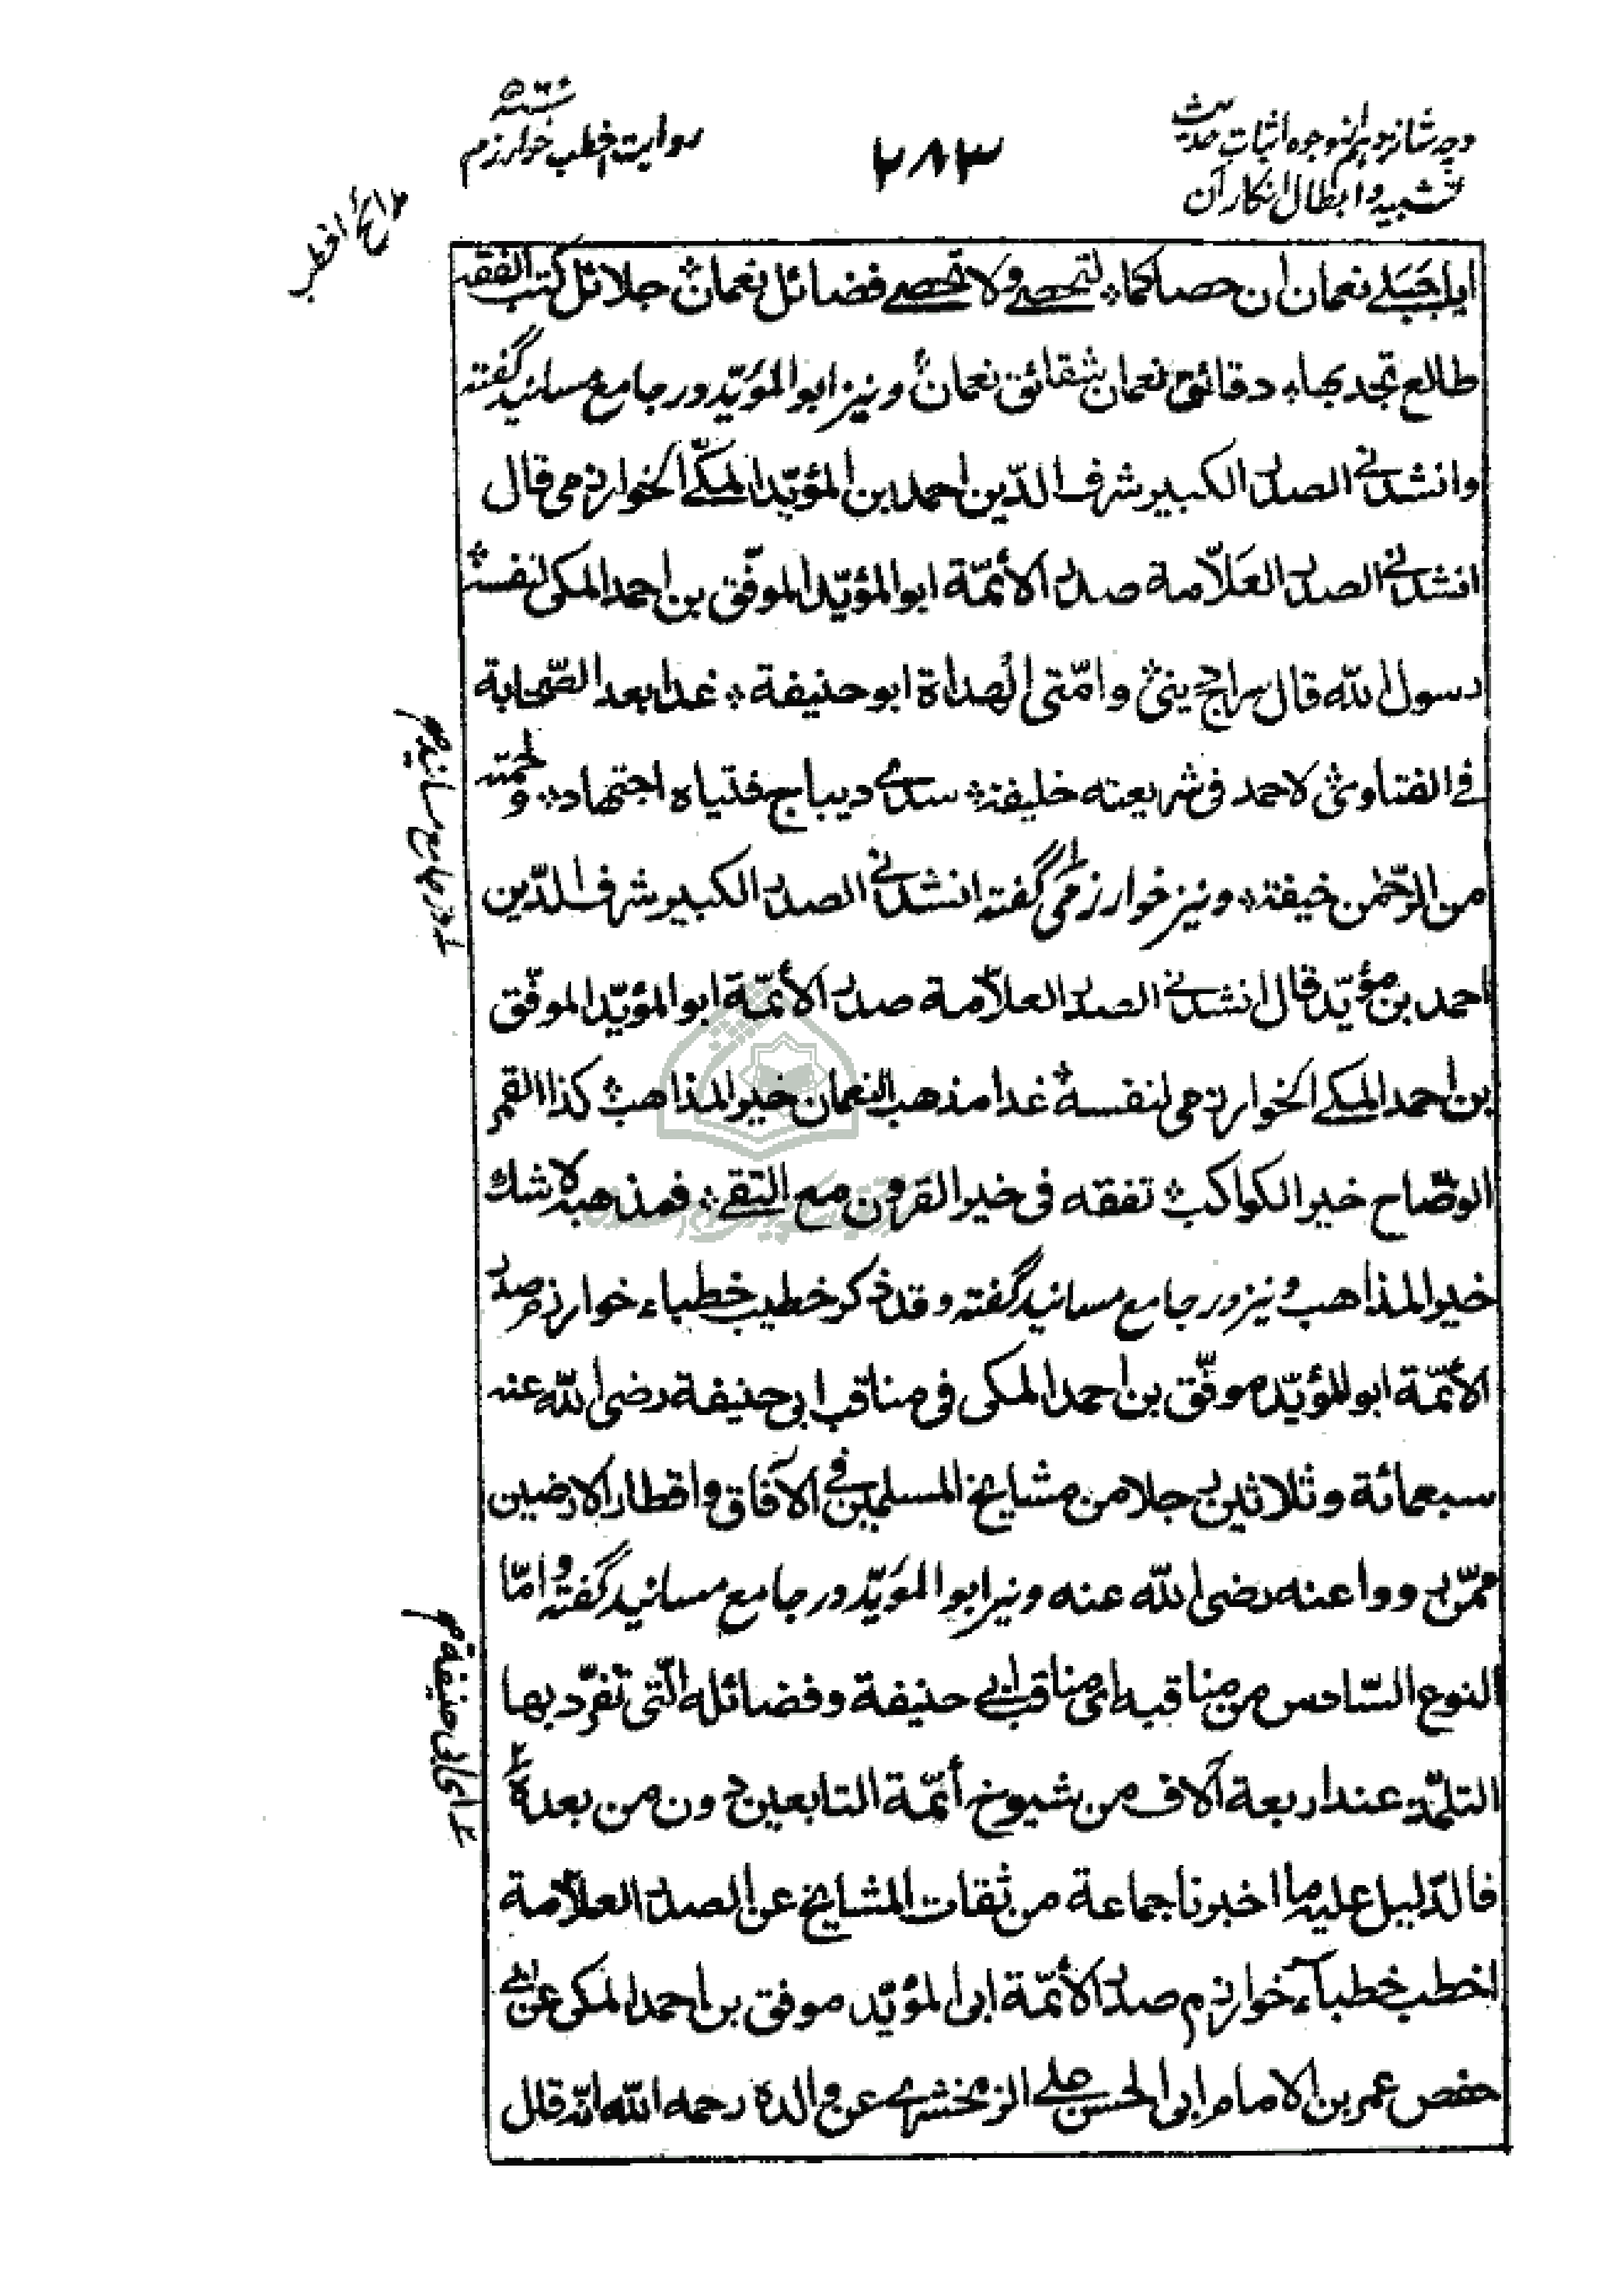 وجه شانزدهم از وجوه اثبات حدیث
تشبیه و ابطال انکار آن
۲۸۳
روایت اخطب خوارزم
مدائح اخطب
ایا جبلے نعمان ان حصاکما ؞ لتحصے ولا تحصے فضائل نعمان ؞ جلائل کتب الفقه
طالع تجد بها ؞ دقائق نعمان شقائق نعمان ؞ ونیز ابو المؤیّد در جامع مسانید گفته
وانشدنے الصدر الکبیر شرف الدّین احمد بن المؤیّد المکّے الخوارزمی قال
انشدنے الصدر العلاّمة صدر الأئمّة ابو المؤیّد الموفّق بن احمد المکی لنفسه ؞
رسول الله قال سراج دینی ؞ وامّتی الهداة ابو حنیفة ؞ غدا بعد الصّحابة
فے الفتاوی ؞ لاحمد فی شریعته خلیفة ؞ سدے دیباج فتیاه اجتهاد ؞ ولحمته
من الرّحمٰن خیفة ؞ ونیز خوارزمی گفته انشدنے الصدر الکبیر شرف الدّین
احمد بن مؤیّد قال انشدنے الصدر العلاّمة صدر الأئمّة ابو المؤیّد الموفّق
بن احمد المکے الخوارزمی لنفسه ؞ غدا مذهب النعمان خیر المذاهب ؞ کذا القمر
الوضّاح خیر الکواکب ؞ تفقه فی خیر القرون مع التقے ؞ فمذهبه لا شك
خیر المذاهب ونیز در جامع مسانید گفته وقد ذکر خطیب خطباء خوارزم صدر
الأئمّة ابو المؤیّد موفّق بن احمد المکی فی مناقب ابی حنیفة رضی الله عنه
سبعمائة وثلاثین رجلا من مشایخ المسلمین فے الآفاق واقطار الارضین
ممّن رووا عنه رضی الله عنه ونیز ابو المؤیّد در جامع مسانید گفته وامّا
النوع السّادس من مناقبه ای مناقب ابی حنیفة وفضائله الّتی تفرّد بها
التلمّذ عند اربعة آلاف من شیوخ أئمّة التابعین دون من بعده
فالدّلیل علیه ما اخبرنا جماعة من ثقات المشایخ عن الصدر العلاّمة
اخطب خطباء خوارزم صدر الأئمّة ابی المؤیّد موفق بن احمد المکی عن ابے
حفص عمر بن الامام ابی الحسن علے الزمخشرے عن والده رحمه الله انّه قال